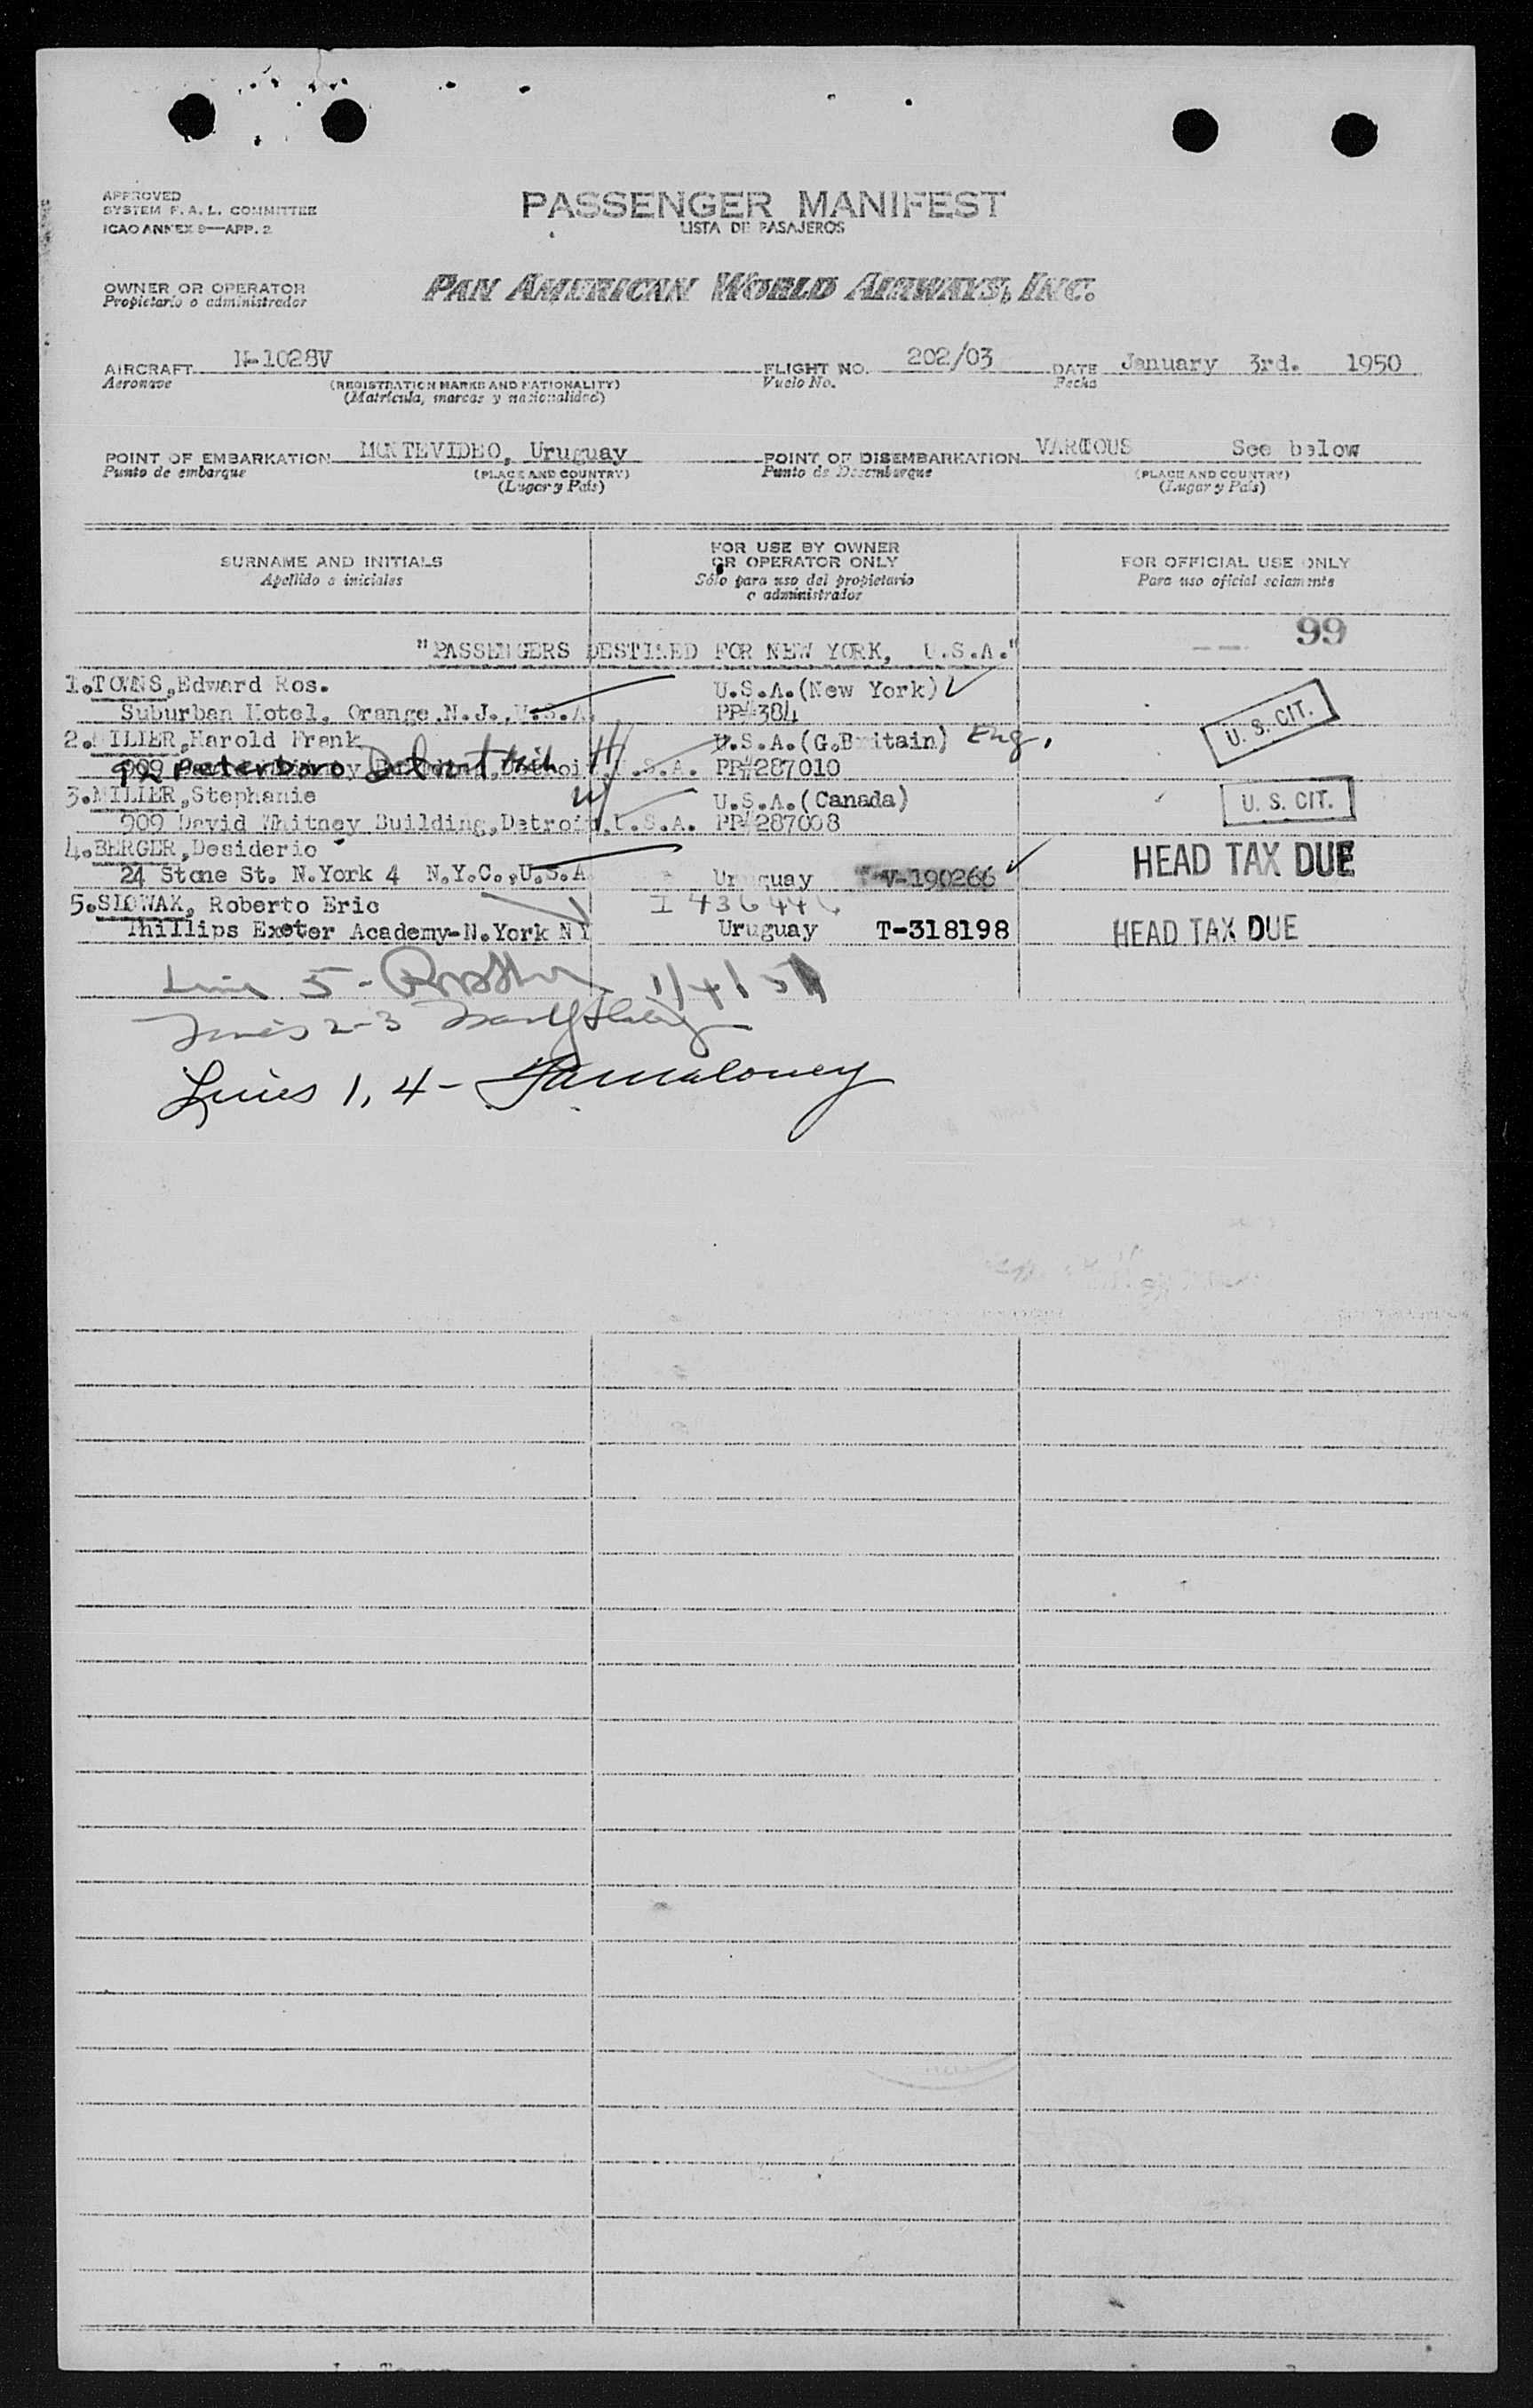 APPROVED
SYSTEM F. A. L. COMMITTEE
ICAO ANNEX 9—APP. 2
PASSENGER MANIFEST
LISTA DE PASAJEROS
OWNER OR OPERATOR
Propietario o administrador
PAN AMERICAN WORLD AIRWAYS, INC.
AIRCRAFT N-1028V FLIGHT NO. 202/03 DATE January 3rd. 1950
Aeronave (REGISTRATION MARKS AND NATIONALITY) Vuelo No. Fecha
(Matrícula, marcas y nacionalidad)
POINT OF EMBARKATION MONTEVIDEO, Uruguay POINT OF DISEMBARKATION VARIOUS See below
Punto de embarque (PLACE AND COUNTRY) Punto de Desembarque (PLACE AND COUNTRY)
(Lugar y País) (Lugar y País)
SURNAME AND INITIALS FOR USE BY OWNER OR OPERATOR ONLY FOR OFFICIAL USE ONLY
Apellido e iniciales Sólo para uso del propietario o administrador Para uso oficial solamente
99
"PASSENGERS DESTINED FOR NEW YORK, U.S.A."
1.TOWNS,Edward Ros. U.S.A.(New York)
Suburban Hotel, Orange,N.J.,U.S.A. PP#384 U. S. CIT.
2.MILLER,Harold Frank U.S.A.(G.Britain) Eng.
92 Peterboro Detroit Mich H
909 U.S.A. PP#287010
3.MILLER,Stephanie W U.S.A.(Canada) U. S. CIT.
909 David Whitney Building,Detroit,U.S.A. PP#287008
4.BERGER,Desiderio HEAD TAX DUE
24 Stone St. N.York 4 N.Y.C.,U.S.A Uruguay V-190266
5.SLOWAK, Roberto Eric I
Phillips Exeter Academy-N.York NY Uruguay T-318198 HEAD TAX DUE
Line 5 - 1/4/50
Lines 2-3
Lines 1, 4 -